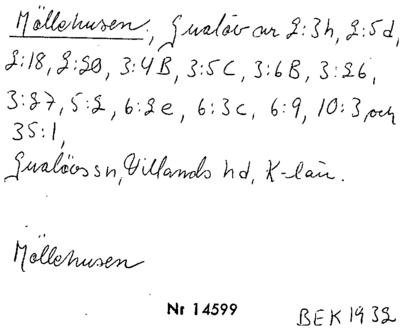 Möllehusen, Gualöv nr 2:3h, 2:5d,
2:18, 2:20, 3:4B, 3:5C, 3:6B, 3:26,
3:27, 5:2, 6:2e, 6:3c, 6:9, 10:3, och
35:1,
Gualövs sn, Villands hd, K-län.
Möllehusen
Nr 14599
BEK 1932